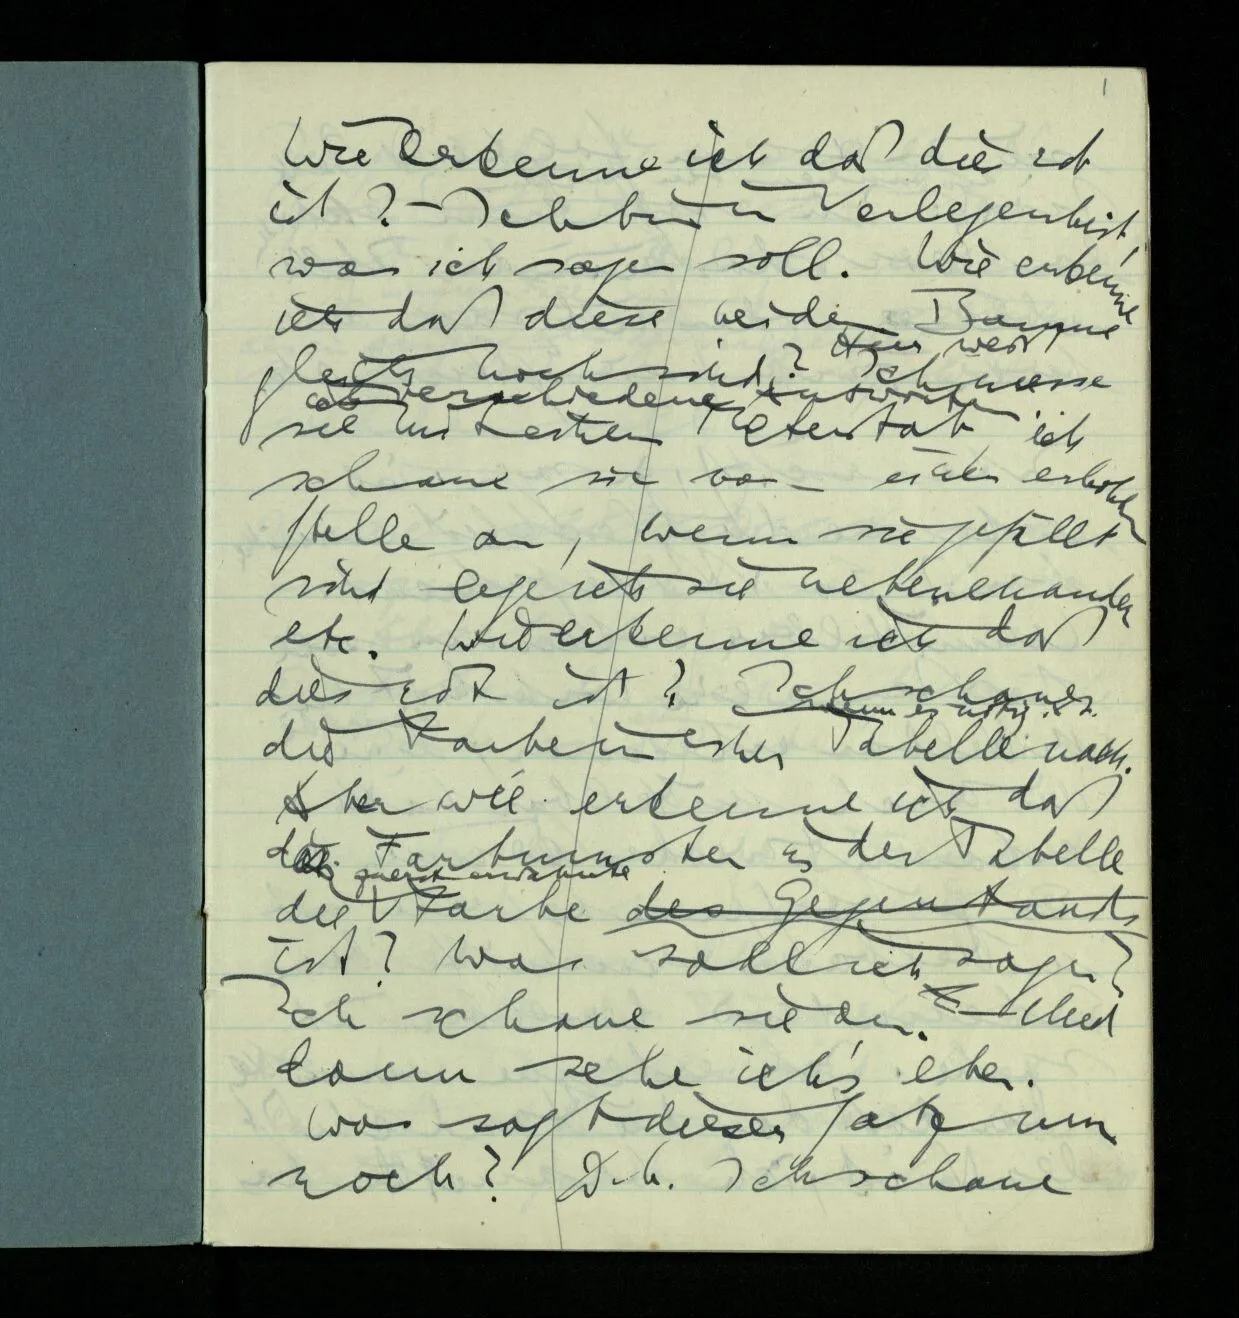 1
Wie erkenne ich daß dies rot
ist? – Ich bin in Verlegenheit,
was ich sagen soll. Wie erkenne
ich daß diese beiden Bäume
gleich hoch sind? Ich messe
verschiedene Antworten
sie mit einem Meterstab ich
schaue sie von einer erhöhten
Stelle an, wenn sie gefällt
sind lege ich sie nebeneinander
etc. Wie erkenne ich daß
dies rot ist? Ich schaue
wenn es nötig ist
die Farbe in einer Tabelle nach.
Aber wie erkenne ich daß
das Farbmuster in der Tabelle
zuerst erwähnte
die Farbe des Gegenstands
ist? Was soll ich sagen?
Ich schaue sie an. – Und
dann sehe ich's eben.
Was sagt dieser Satz nun
noch? D.h. Ich schaue